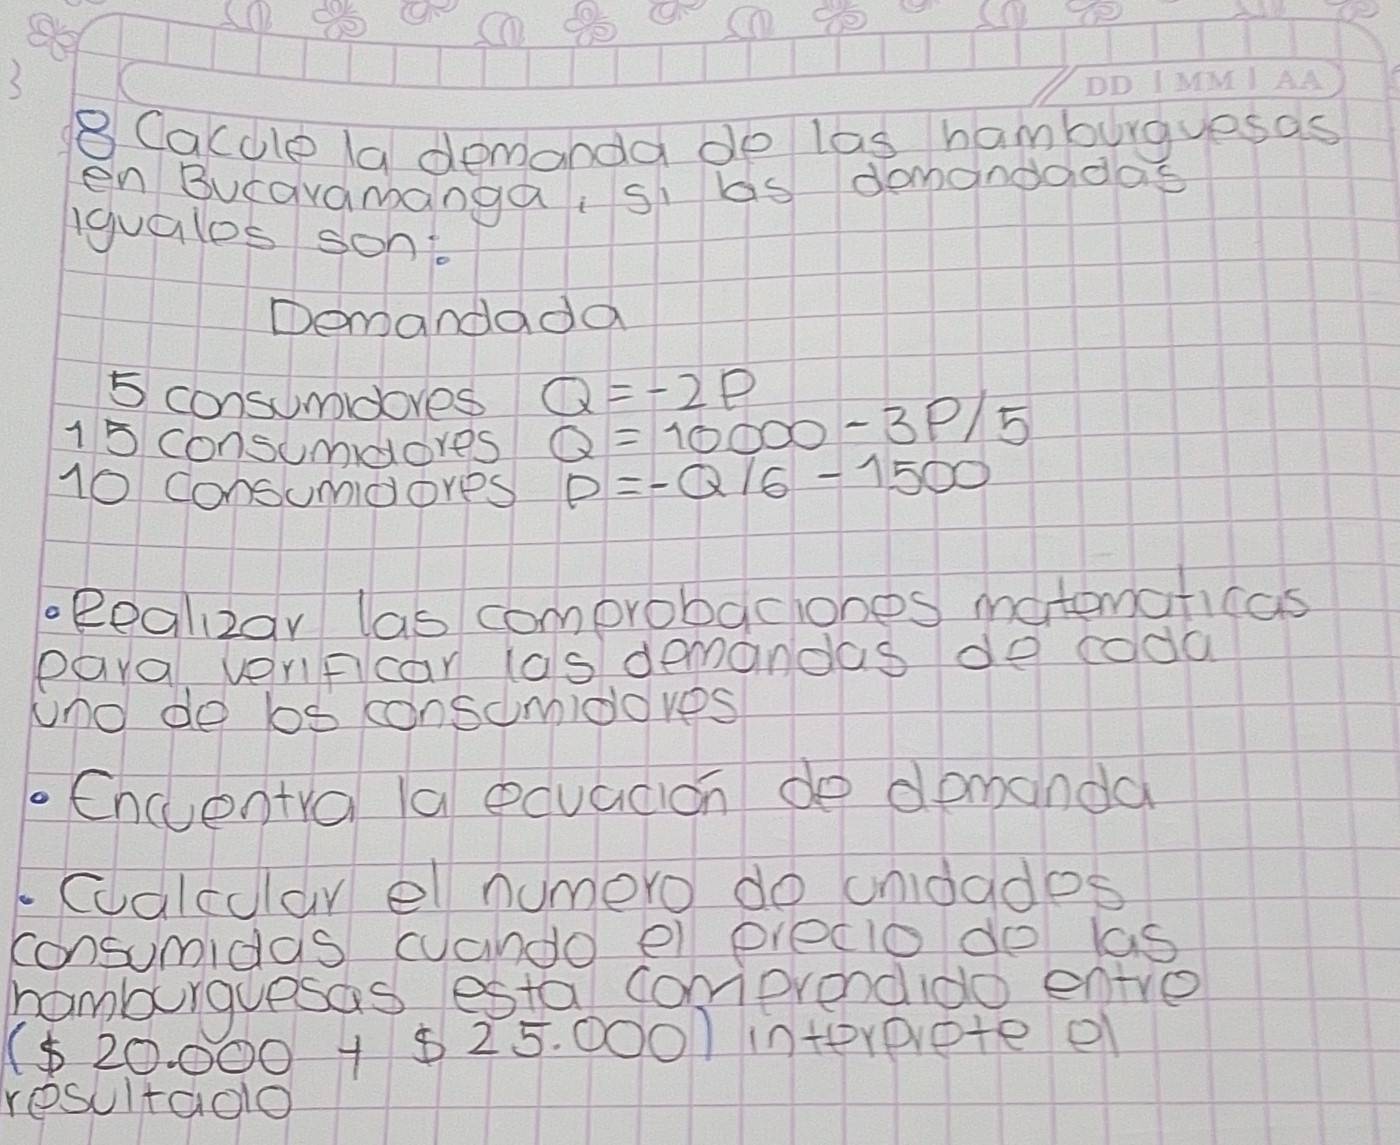 3
DD | MM | AA
8 Cacule la demanda de las hamburguesas
en Bucaramanga, si las demandadas
iguales son:
Demandada
5 consumidores Q = -2P
15 consumidores Q = 10000 - 3P/5
10 consumidores P = -Q/6 - 1500
• Realizar las comprobaciones matematicas
para verificar las demandas de cada
uno de los consumidores
• Encuentra la ecuación de demanda
• Cualcular el numero de unidades
consumidas cuando el precio de las
hamburguesas esta comprendido entre
($ 20.000 + $ 25.000) interprete el
resultado